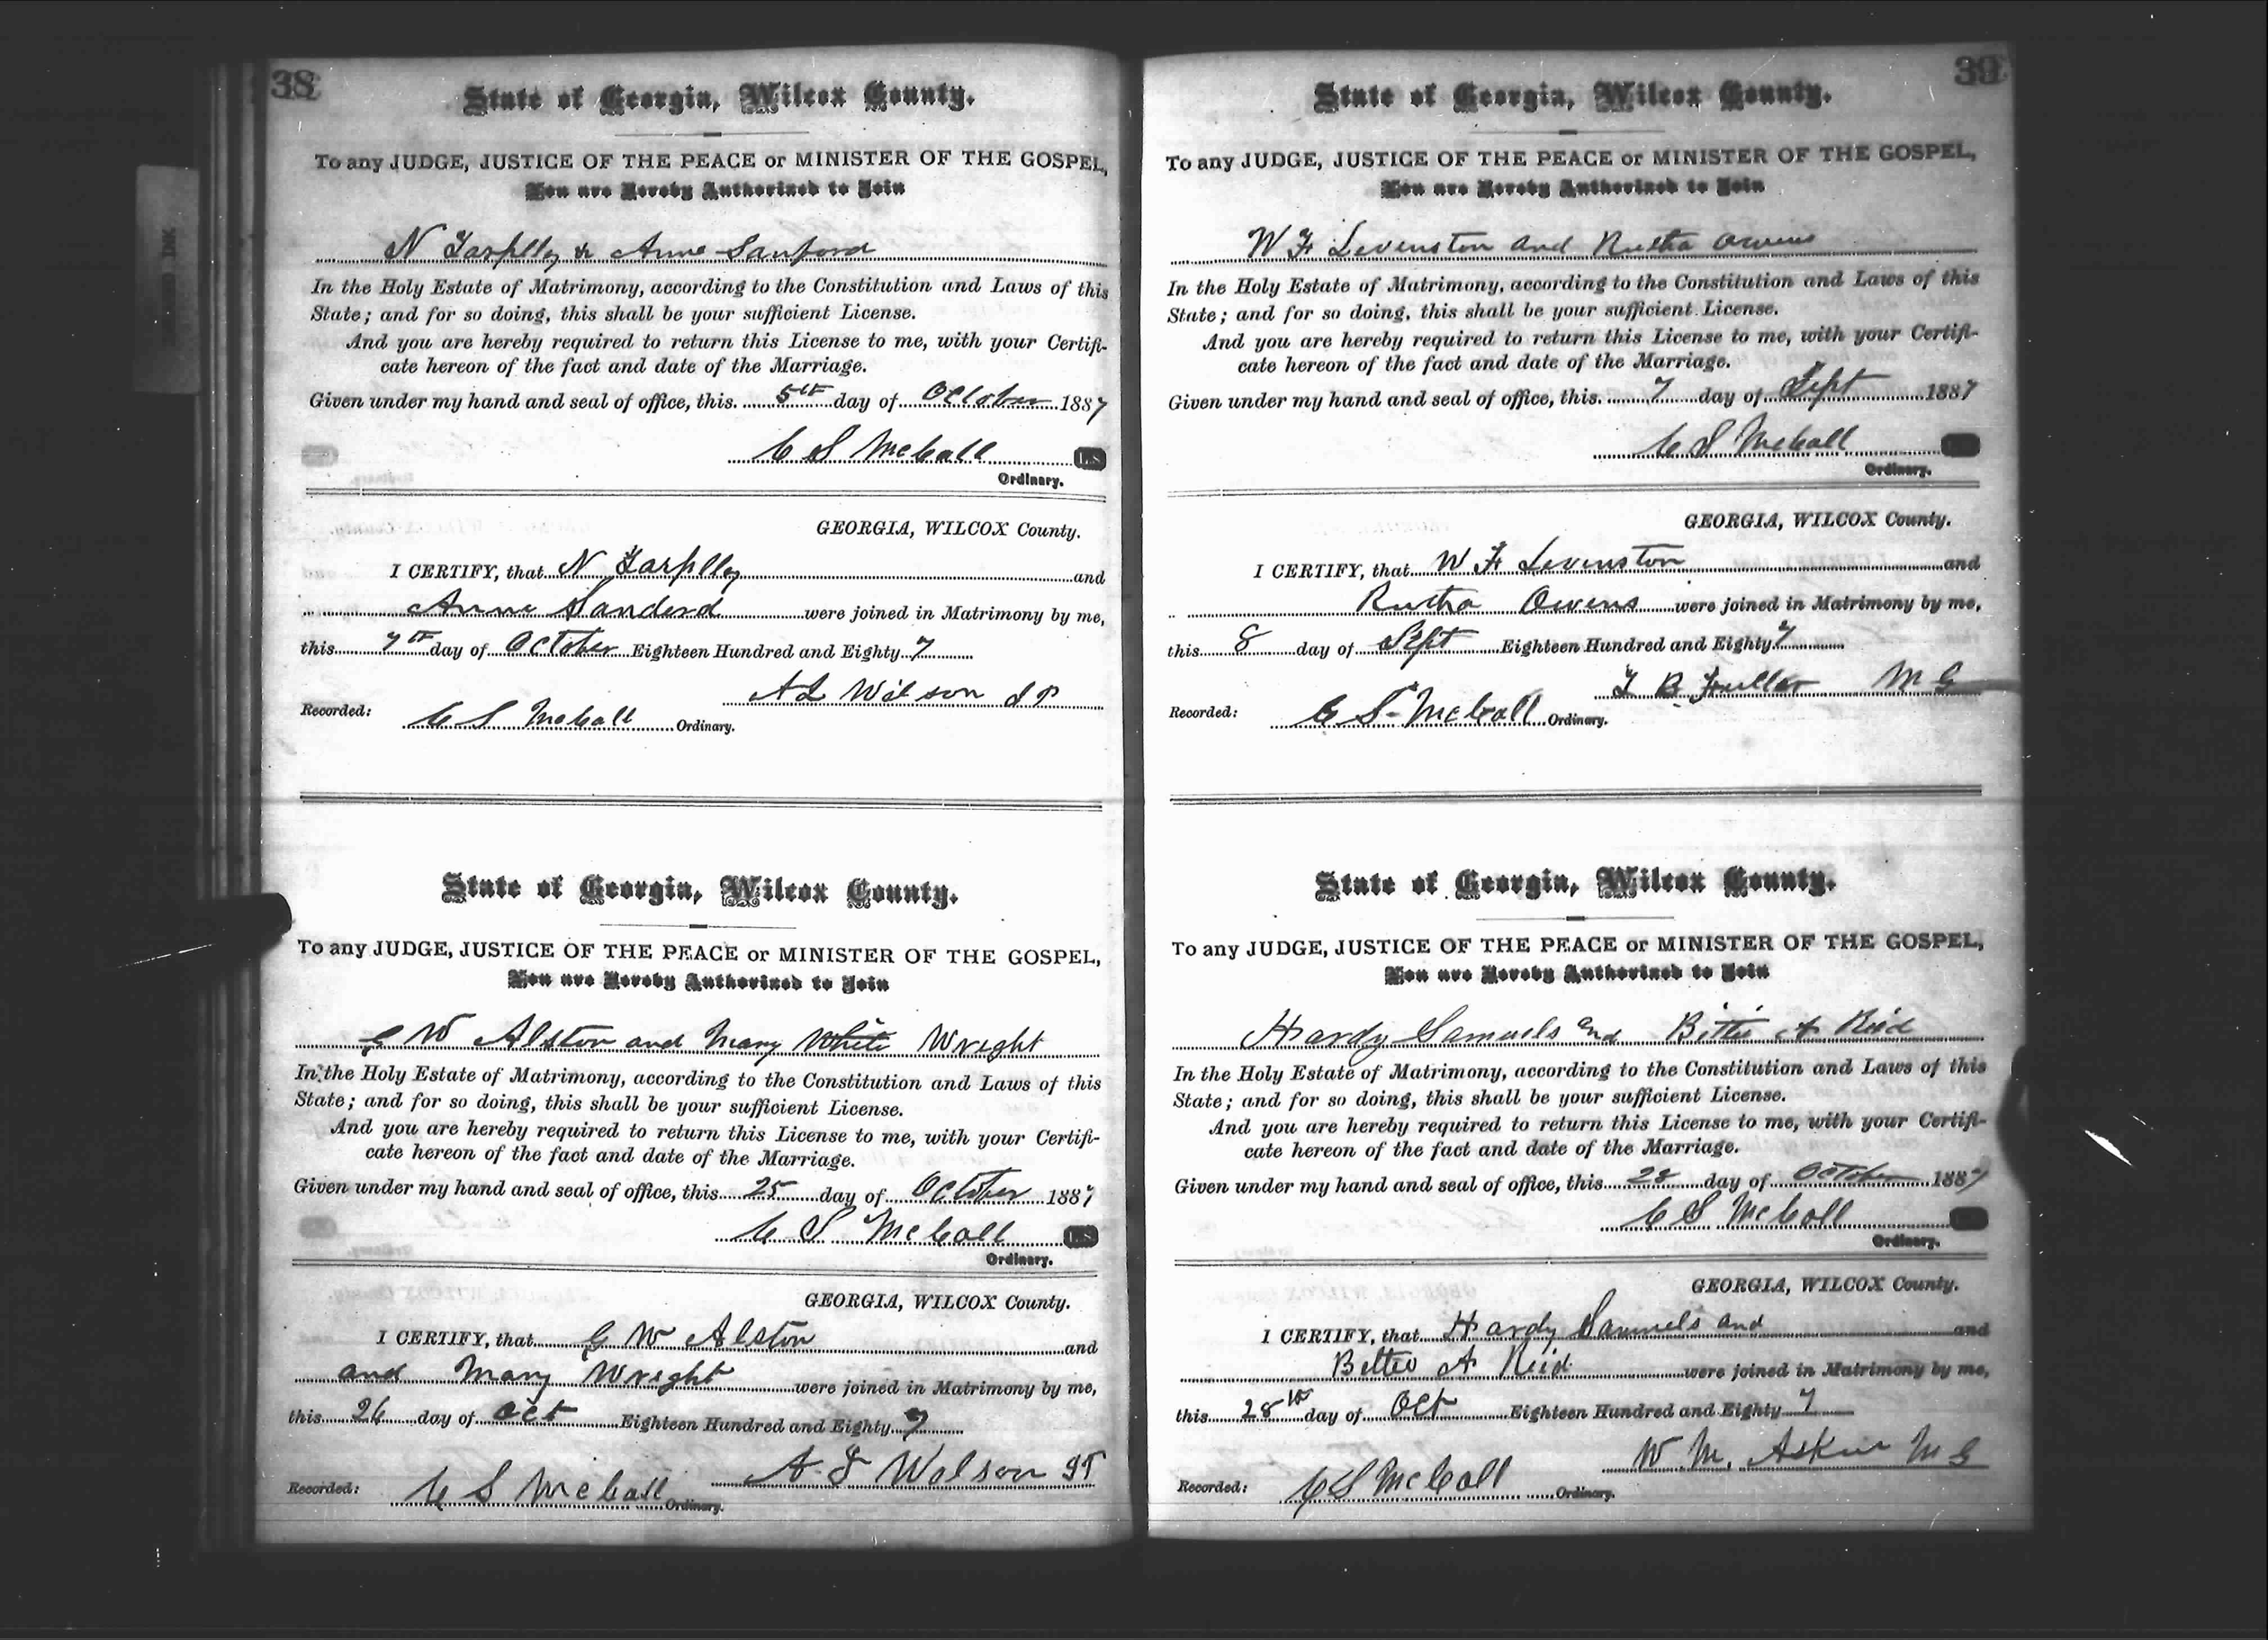 38
State of Georgia, Wilcox County.
To any JUDGE, JUSTICE OF THE PEACE or MINISTER OF THE GOSPEL,
You are Hereby Authorized to Join
N Tarplley & Anne Sanford
In the Holy Estate of Matrimony, according to the Constitution and Laws of this
State; and for so doing, this shall be your sufficient License.
And you are hereby required to return this License to me, with your Certifi-
cate hereon of the fact and date of the Marriage.
Given under my hand and seal of office, this 5th day of October 1887
C S McCall L.S
Ordinary.
GEORGIA, WILCOX County.
I CERTIFY, that N Tarplley and
Anne Sanderd were joined in Matrimony by me,
this 7th day of October Eighteen Hundred and Eighty 7
A L Wilson J P
Recorded: C S McCall Ordinary.
State of Georgia, Wilcox County.
To any JUDGE, JUSTICE OF THE PEACE or MINISTER OF THE GOSPEL,
You are Hereby Authorized to Join
G W Alston and Mary White Wright
In the Holy Estate of Matrimony, according to the Constitution and Laws of this
State; and for so doing, this shall be your sufficient License.
And you are hereby required to return this License to me, with your Certifi-
cate hereon of the fact and date of the Marriage.
Given under my hand and seal of office, this 25 day of October 1887
C S McCall L.S
Ordinary.
GEORGIA, WILCOX County.
I CERTIFY, that G W Alston and
and Mary Wright were joined in Matrimony by me,
this 26 day of Oct Eighteen Hundred and Eighty 7
A Wilson
Recorded: C S McCall Ordinary.
39
State of Georgia, Wilcox County.
To any JUDGE, JUSTICE OF THE PEACE or MINISTER OF THE GOSPEL,
You are Hereby Authorized to Join
W F Levinston and Rutha Owens
In the Holy Estate of Matrimony, according to the Constitution and Laws of this
State; and for so doing, this shall be your sufficient License.
And you are hereby required to return this License to me, with your Certifi-
cate hereon of the fact and date of the Marriage.
Given under my hand and seal of office, this 7 day of Sept 1887
C S McCall
Ordinary.
GEORGIA, WILCOX County.
I CERTIFY, that W F Levinston and
Rutha Owens were joined in Matrimony by me,
this 8 day of Sept Eighteen Hundred and Eighty 7
T B Fuller M G
Recorded: C S McCall Ordinary.
State of Georgia, Wilcox County.
To any JUDGE, JUSTICE OF THE PEACE or MINISTER OF THE GOSPEL,
You are Hereby Authorized to Join
Hardy Samuels and Bettie A Reid
In the Holy Estate of Matrimony, according to the Constitution and Laws of this
State; and for so doing, this shall be your sufficient License.
And you are hereby required to return this License to me, with your Certifi-
cate hereon of the fact and date of the Marriage.
Given under my hand and seal of office, this 28 day of October 1887
C S McCall
Ordinary.
GEORGIA, WILCOX County.
I CERTIFY, that Hardy Samuels and and
Bettie A Reid were joined in Matrimony by me,
this 28th day of Oct Eighteen Hundred and Eighty 7
W. M. Askew M G
Recorded: C S McCall Ordinary.